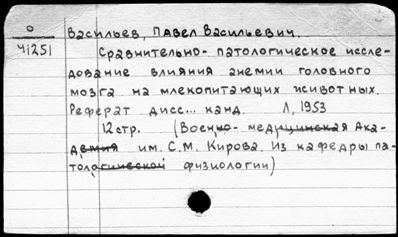 О
41251
Васильев, Павел Васильевич.
Сравнительно- патологическое иссле-
дование влияния анемии головного
мозга на млекопитающих животных.
Реферат дисс... канд. Л, 1953
12стр. (Военно- медицинская Ака-
демия им. С.М. Кирова. Из кафедры па-
тологической физиологии)